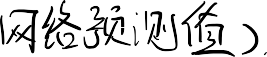 网络预测值）